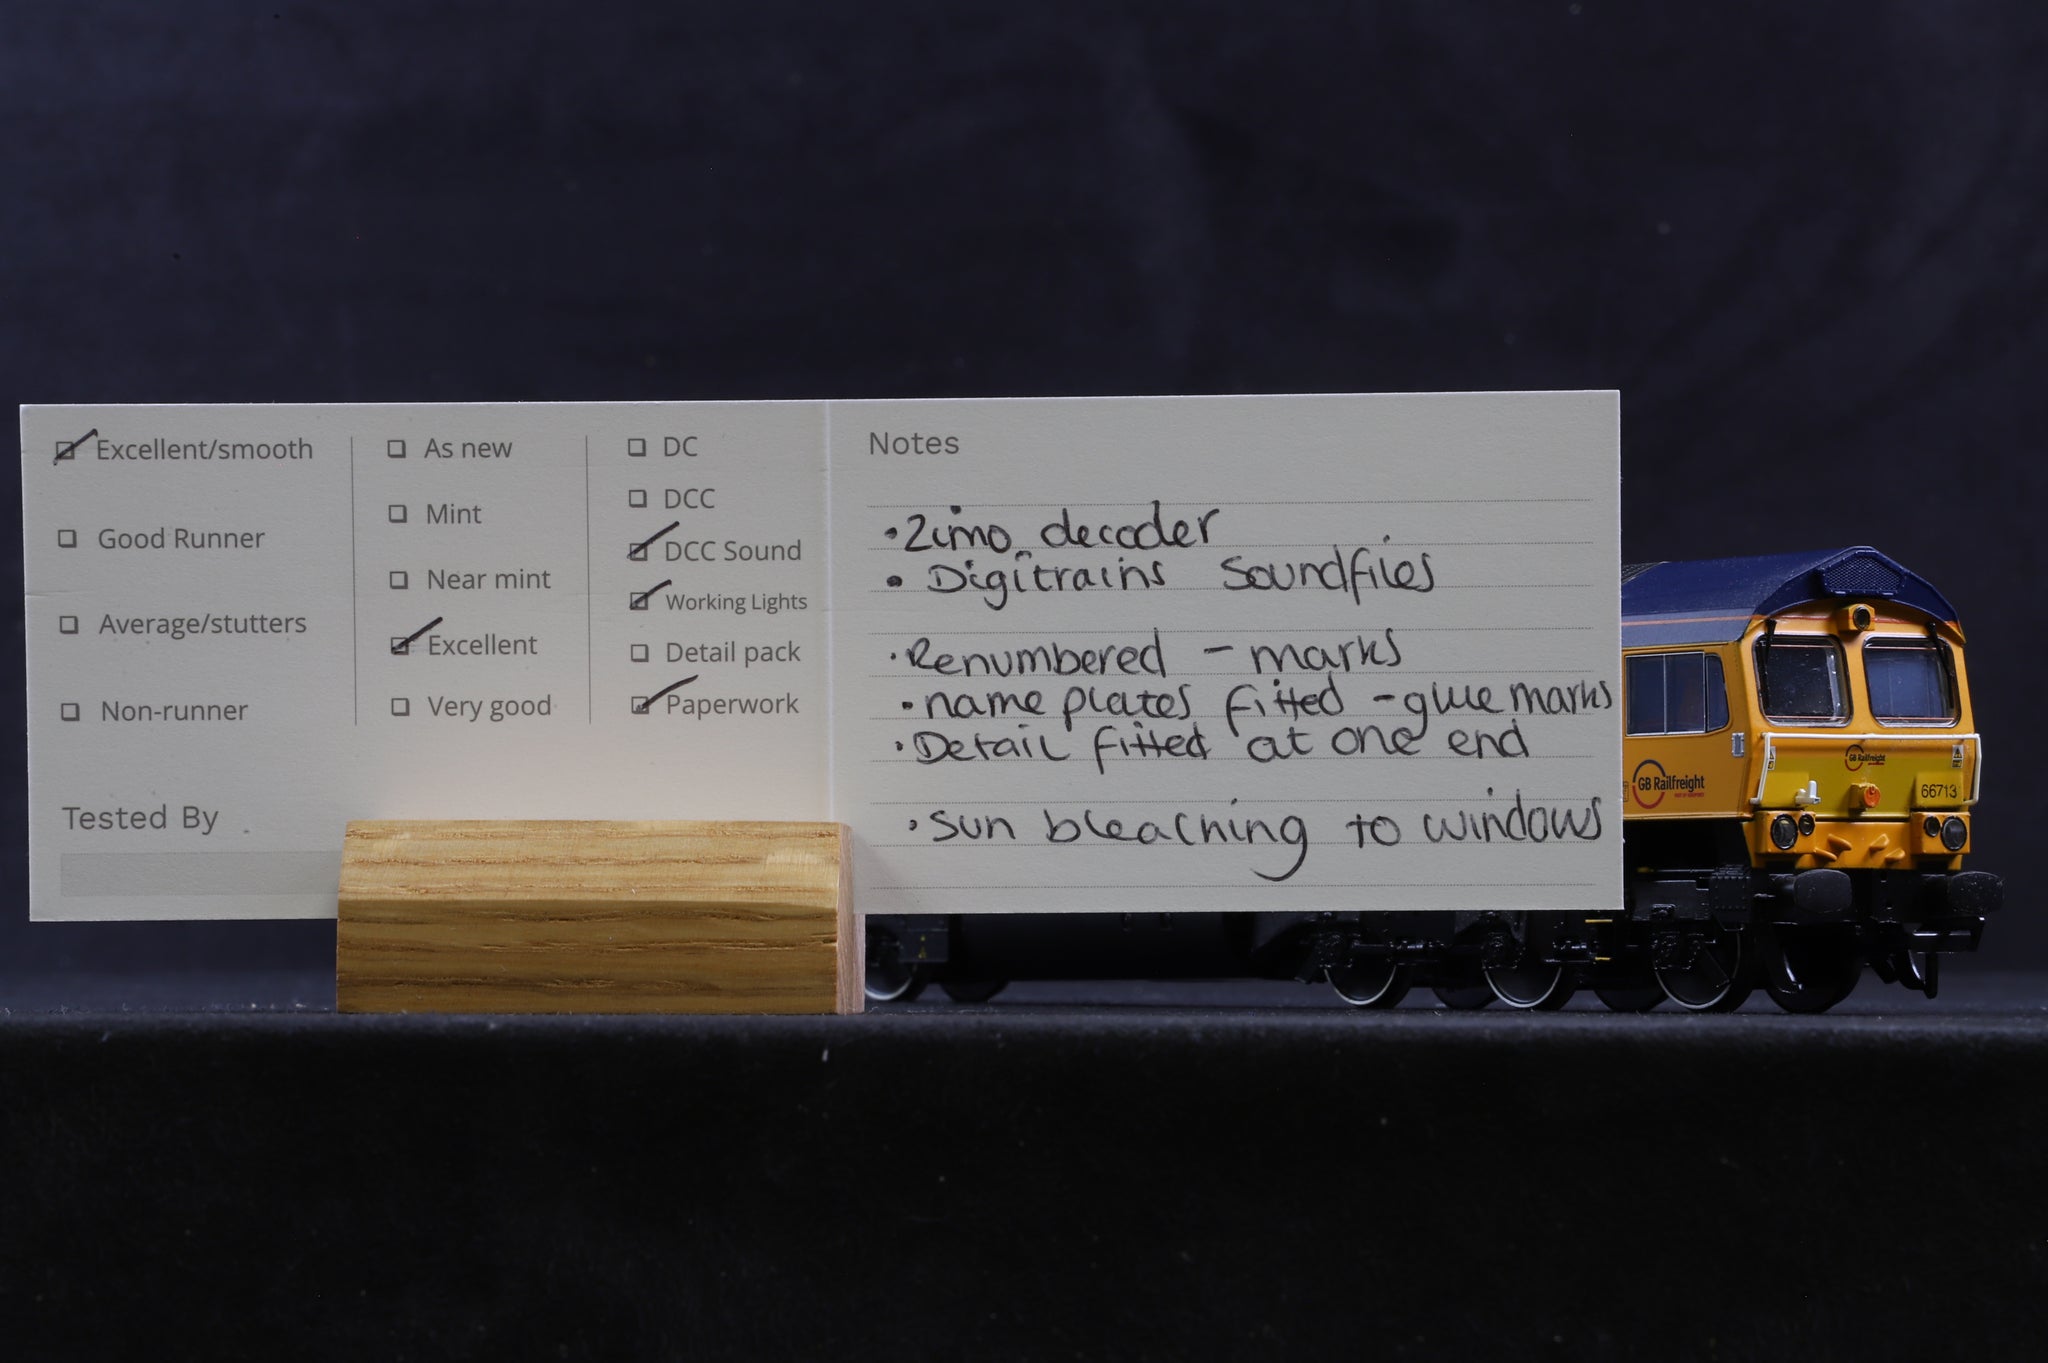 ☑ Excellent/smooth
☐ Good Runner
☐ Average/stutters
☐ Non-runner
Tested By
☐ As new
☐ Mint
☐ Near mint
☑ Excellent
☐ Very good
☐ DC
☐ DCC
☑ DCC Sound
☑ Working Lights
☐ Detail pack
☑ Paperwork
Notes
• Zimo decoder
• Digitrains Soundfiles
• Renumbered - marks
• name plates fitted - glue marks
• Detail fitted at one end
• sun bleaching to windows
GB Railfreight
GB Railfreight
66713